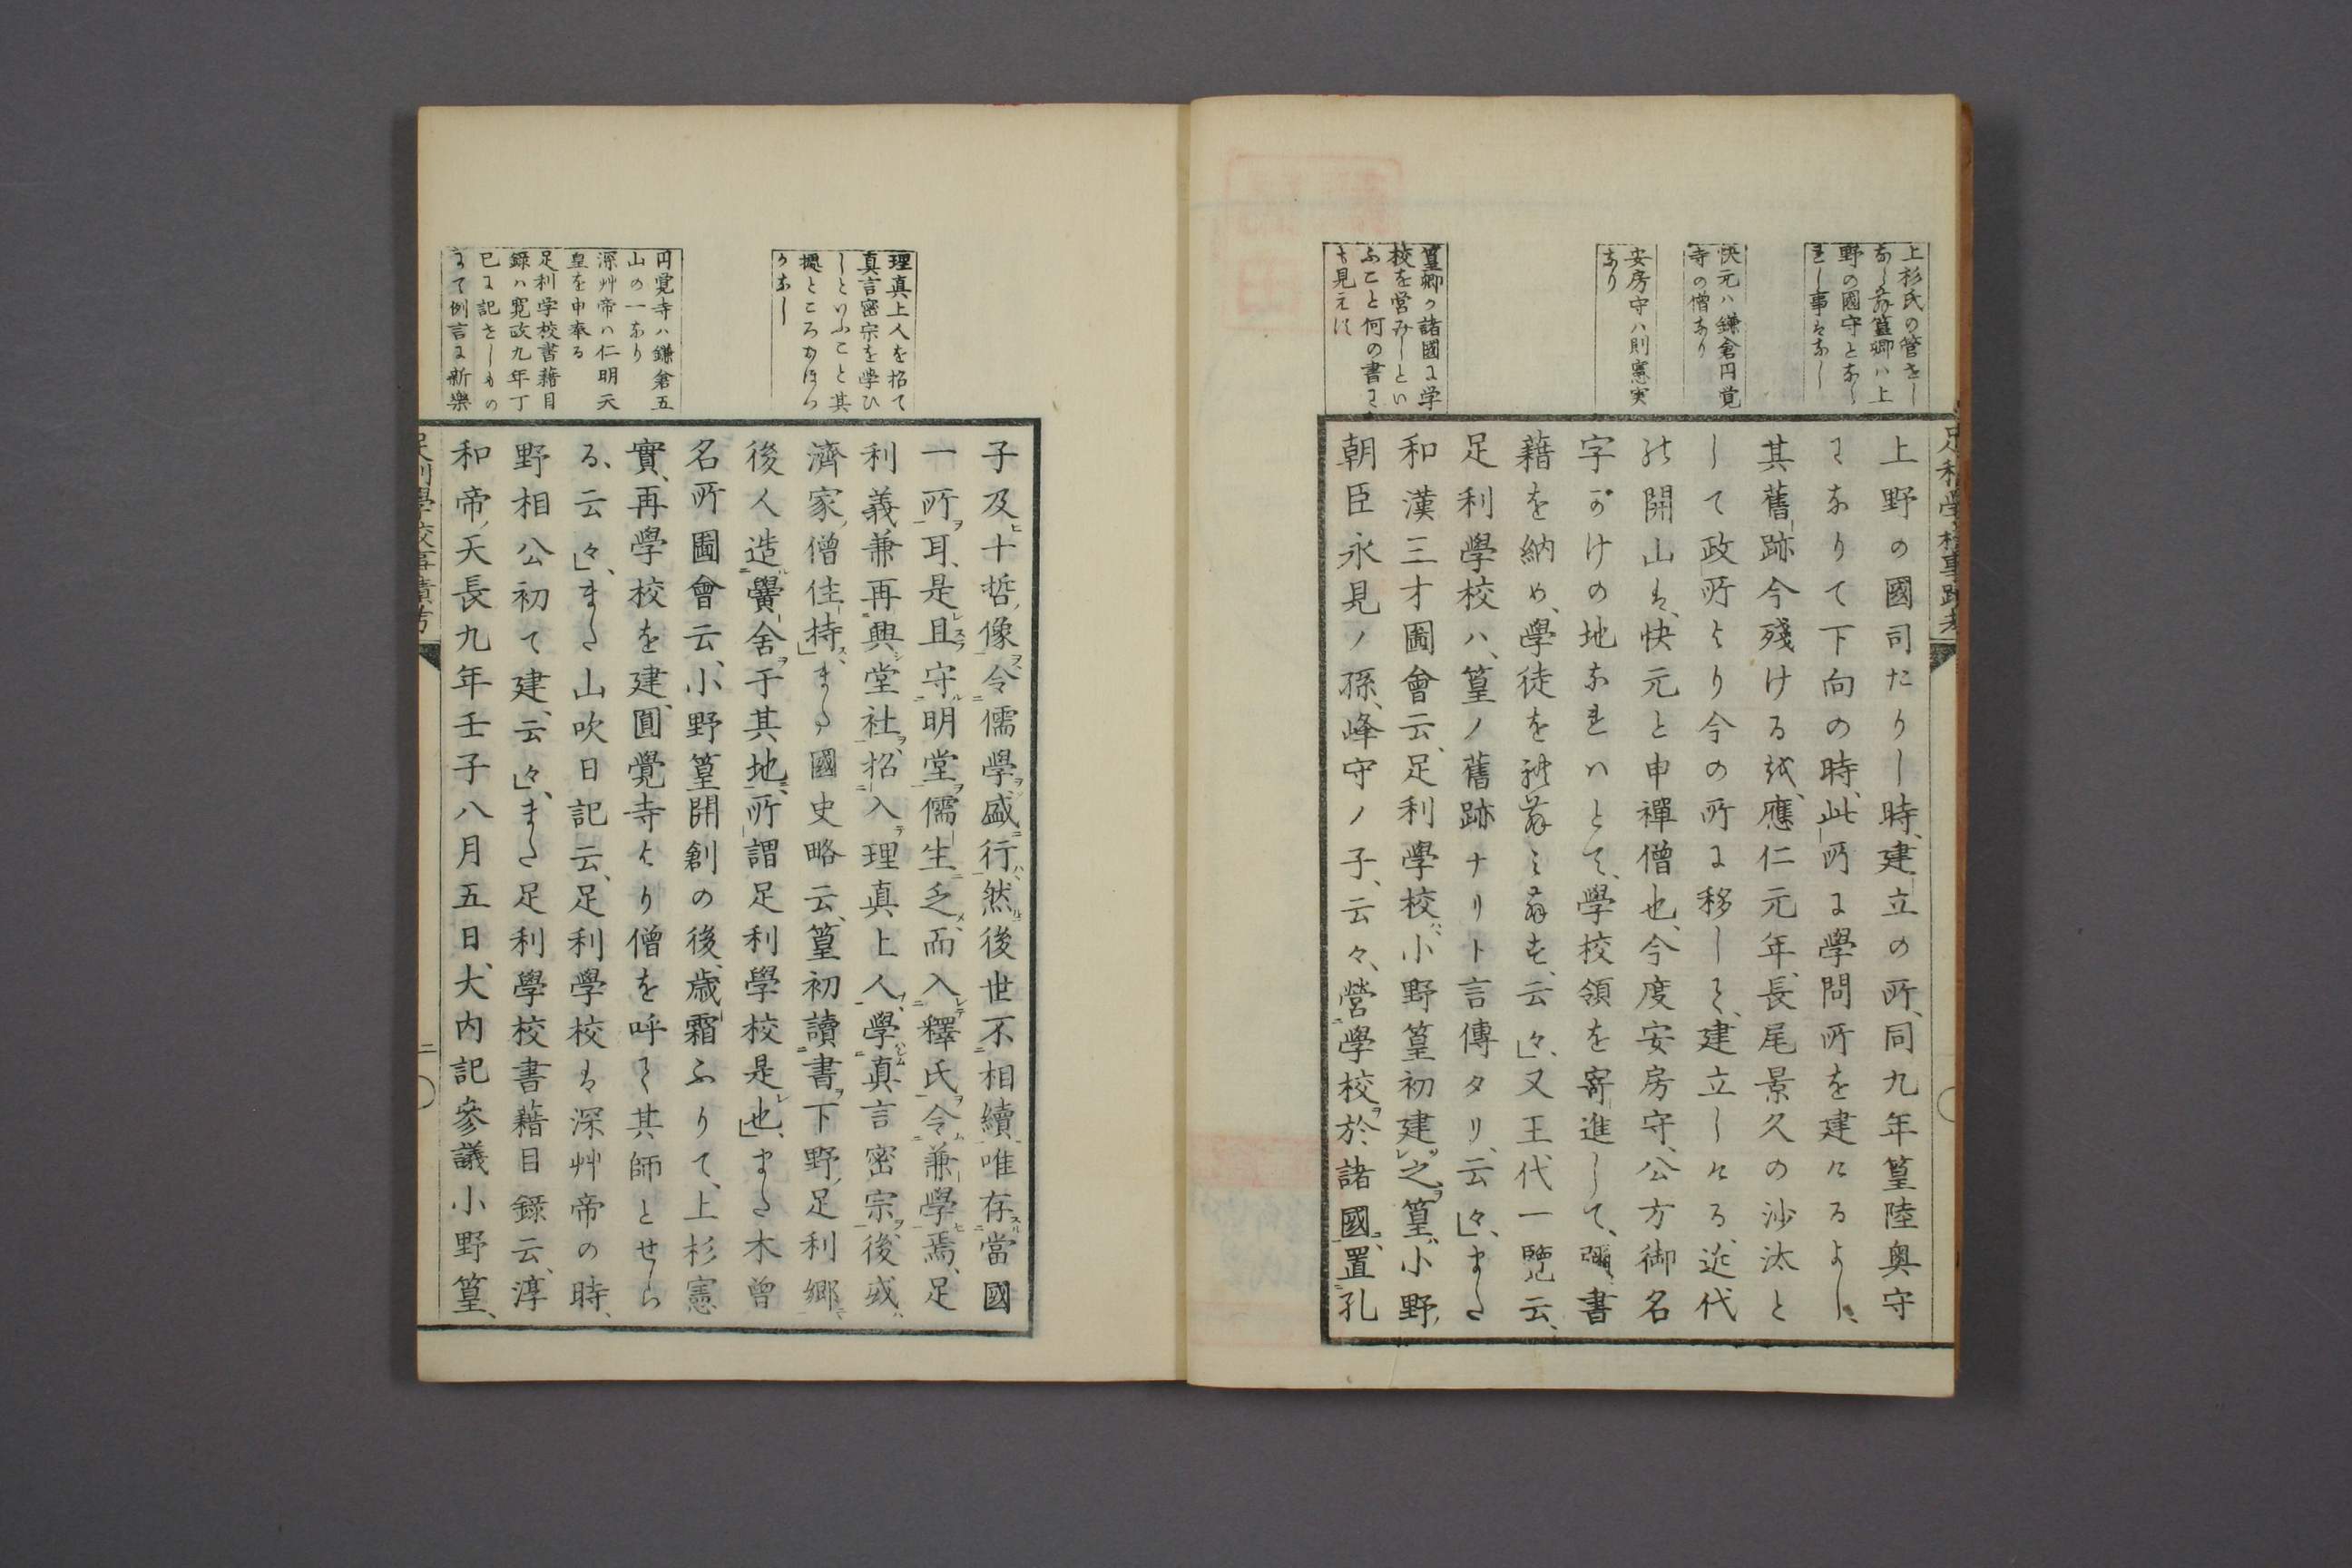 上杉氏の管せし
なら𛂞篁卿ハ上
野の國守となら
れし事𛂞なし
快元ハ鎌倉円覚
寺の僧なり
安房守ハ則憲実
なり
篁卿か諸國に学
校を営みしとい
ふこと何の書に
も見えす
上野の國司たりし時、建立の所、同九年篁陸奥守
になりて下向の時、此所に學問所を建けるよし、
其舊跡今殘ける歟、應仁元年、長尾景久の沙汰と
して政所より今の所に移して、建立しける、近代
の開山は、快元と申禪僧也、今度安房守、公方御名
字かけの地なれハとて、學校領を寄進して、彌書
藉を納め、學徒を
す、云々」、又王代一覽云、
足利學校ハ、篁ノ舊跡ナリト言傳タリ、云々」、また
和漢三才圖會云、足利學校、小野篁初建之、篁、小野
朝臣永見ノ孫、峰守ノ子、云々、營學校於諸國、置孔
理真上人を招て
真言密宗を学ひ
しといふこと其
據ところおほつ
かなし
円覚寺ハ鎌倉五
山の一なり
深艸帝ハ仁明天
皇を申奉る
足利学校書藉目
録ハ寛政九年丁
巳に記せしもの
にて例言に新樂
子及十哲像、令儒學盛行、然後世不相續、唯存當國
一所耳、是且守明堂儒生乏、而入釋氏令兼學焉、足
利義兼再興堂社、招入理真上人、學真言密宗、後或
濟家僧住持」また國史略云、篁初讀書下野足利郷
後人造黌舍于其地、所謂足利學校是也」、また木曾
名所圖會云、小野篁開創の後、歳霜ふりて、上杉憲
實、再學校を建、圓覺寺より僧を呼て其師とせら
る、云々」、また山吹日記云、足利學校は深艸帝の時、
野相公初て建、云々」、また足利學校書藉目錄云、淳
和帝、天長九年壬子八月五日、大内記參議小野篁、